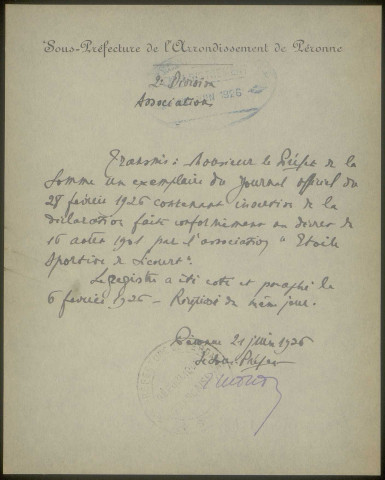 Sous-Préfecture de l'Arrondissement de Péronne
2e Division
Association
Transmis à Monsieur le Préfet de la
Somme un exemplaire du Journal officiel du
28 février 1926 contenant insertion de la
déclaration faite conformément au décret de
16 août 1901 par l'association "Etoile
Sportive de Licourt".
Le registre a été coté et paraphé le
6 février 1926 - Récépissé du même jour.
Péronne 21 juin 1926
Le Sous-Préfet